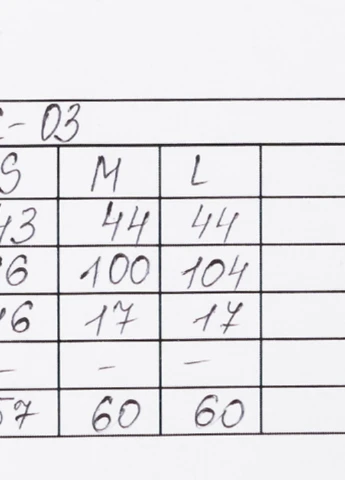 - 03
S M L
43 44 44
6 100 104
16 17 17
- - -
57 60 60